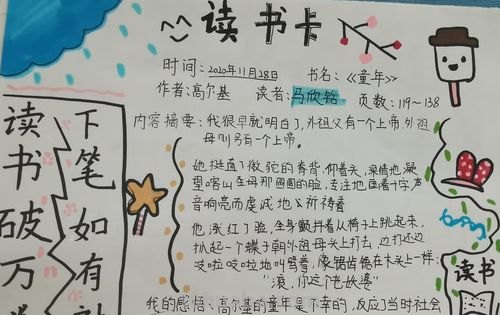 读书卡
时间：2020年11月28日 书名：《童年》
作者：高尔基 读者：马欣铭 页数：119~138
内容摘要：我狠早就明白了，外祖父有一个上帝，外祖
母则另有一个上帝。
她挺直了微驼的脊背，仰着头，深情地凝
望喀山圣母那圆圆的脸，专注地画着十字，声
音响亮而虔诚地祈祷着
他涨红了脸，全身颤抖着从椅子上跳起来，
抓起一个碟子朝外祖母头上打去，边打还边
吱啦吱啦地叫骂着，像锯齿锯在木头上一样：
"滚，你这个老妖婆"
我的感悟：高尔基的童年是不幸的，反应了当时社会
读书破万
下笔如有
读书